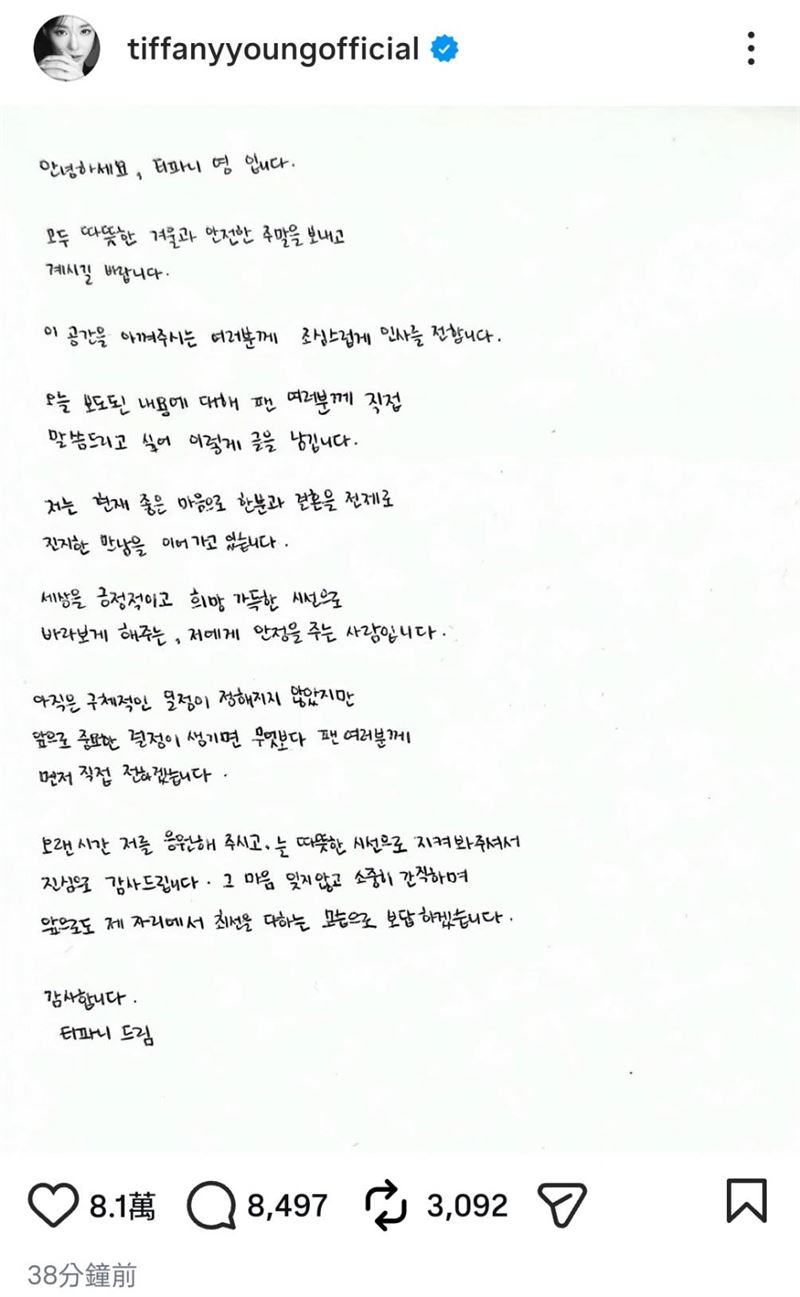 tiffanyyoungofficial
안녕하세요, 티파니 영 입니다.
모두 따뜻한 겨울과 안전한 주말을 보내고
계시길 바랍니다.
이 공간을 아껴주시는 여러분께 조심스럽게 인사를 전합니다.
오늘 보도된 내용에 대해 팬 여러분께 직접
말씀드리고 싶어 이렇게 글을 남깁니다.
저는 현재 좋은 마음으로 한분과 결혼을 전제로
진지한 만남을 이어가고 있습니다.
세상을 긍정적이고 희망 가득한 시선으로
바라보게 해주는, 저에게 안정을 주는 사람입니다.
아직은 구체적인 일정이 정해지지 않았지만
앞으로 중요한 결정이 생기면 무엇보다 팬 여러분께
먼저 직접 전하겠습니다.
오랜 시간 저를 응원해 주시고, 늘 따뜻한 시선으로 지켜봐주셔서
진심으로 감사드립니다. 그 마음 잊지않고 소중히 간직하며
앞으로도 제 자리에서 최선을 다하는 모습으로 보답하겠습니다.
감사합니다.
티파니 드림
8.1萬 8,497 3,092
38分鐘前